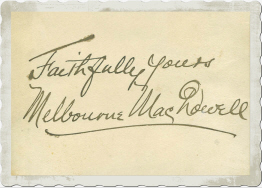 Faithfully Yours
Melbourne MacDowell